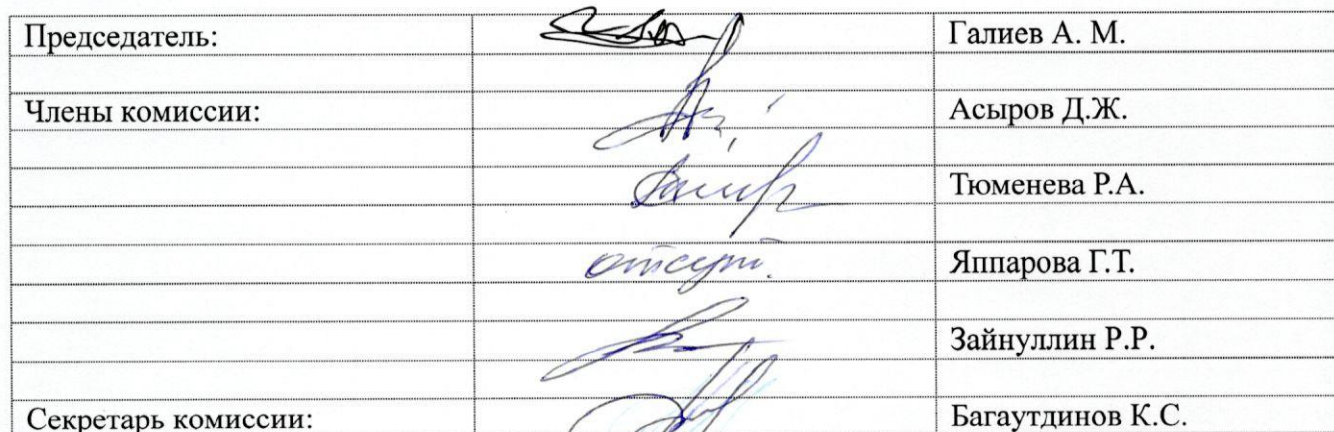 Председатель: Галиев А. М.
Члены комиссии: Асыров Д.Ж.
Тюменева Р.А.
отсут. Яппарова Г.Т.
Зайнуллин Р.Р.
Секретарь комиссии: Багаутдинов К.С.